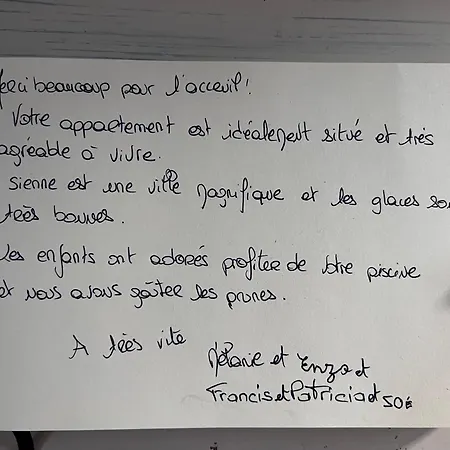 erci beaucoup pour l'acceuil!
Votre appartement est idéalement situé et très
agréable à vivre.
Sienne est une ville magnifique et les glaces so
très bonnes.
Les enfants ont adorés profiter de votre piscine
et nous avons goûter les prunes.
A très vite
Mélanie et Enzo et
Francis et Patricia et SOé